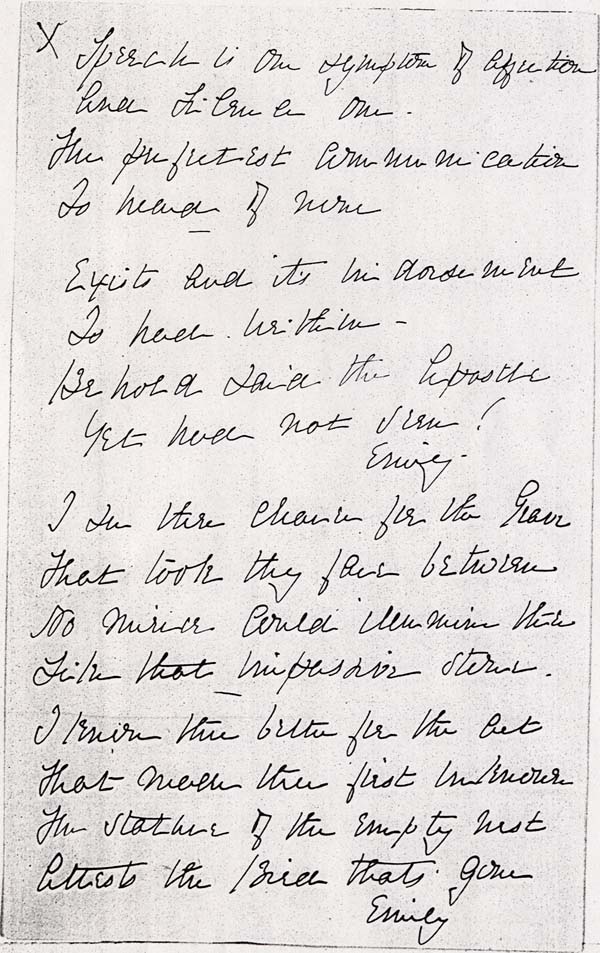 X Speech is one symptom of affection
And Silence one.
The perfectest communication
Is heard of none
Exists and its indorsement
Is had within -
Behold said the Apostle
Yet had not seen!
Emily.
I see thee clearer for the Grave
That took thy face between
No mirror could illumine thee
Like that impassive stone.
I know thee better for the act
That made thee first unknown
The stature of the empty nest
Attests the Bird that's gone
Emily